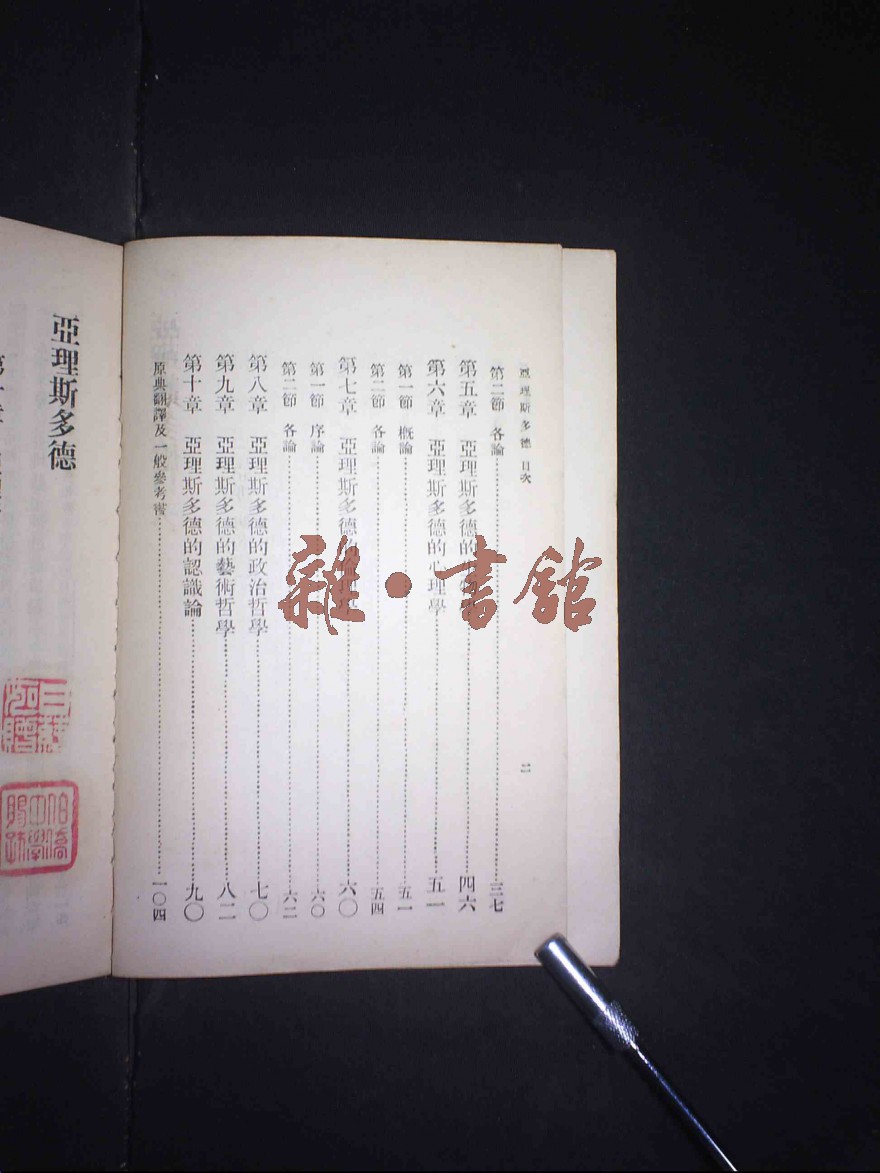 亞理斯多德 目次
二
第二節 各論 三七
第五章 亞理斯多德的 學 四六
第六章 亞理斯多德的心理學 五一
第一節 概論 五一
第二節 各論 五四
第七章 亞理斯多德的 六〇
第一節 序論 六〇
第二節 各論 六二
第八章 亞理斯多德的政治哲學 七〇
第九章 亞理斯多德的藝術哲學 八二
第十章 亞理斯多德的認識論 九〇
原典翻譯及一般參考書 一〇四
亞理斯多德
雜·書館